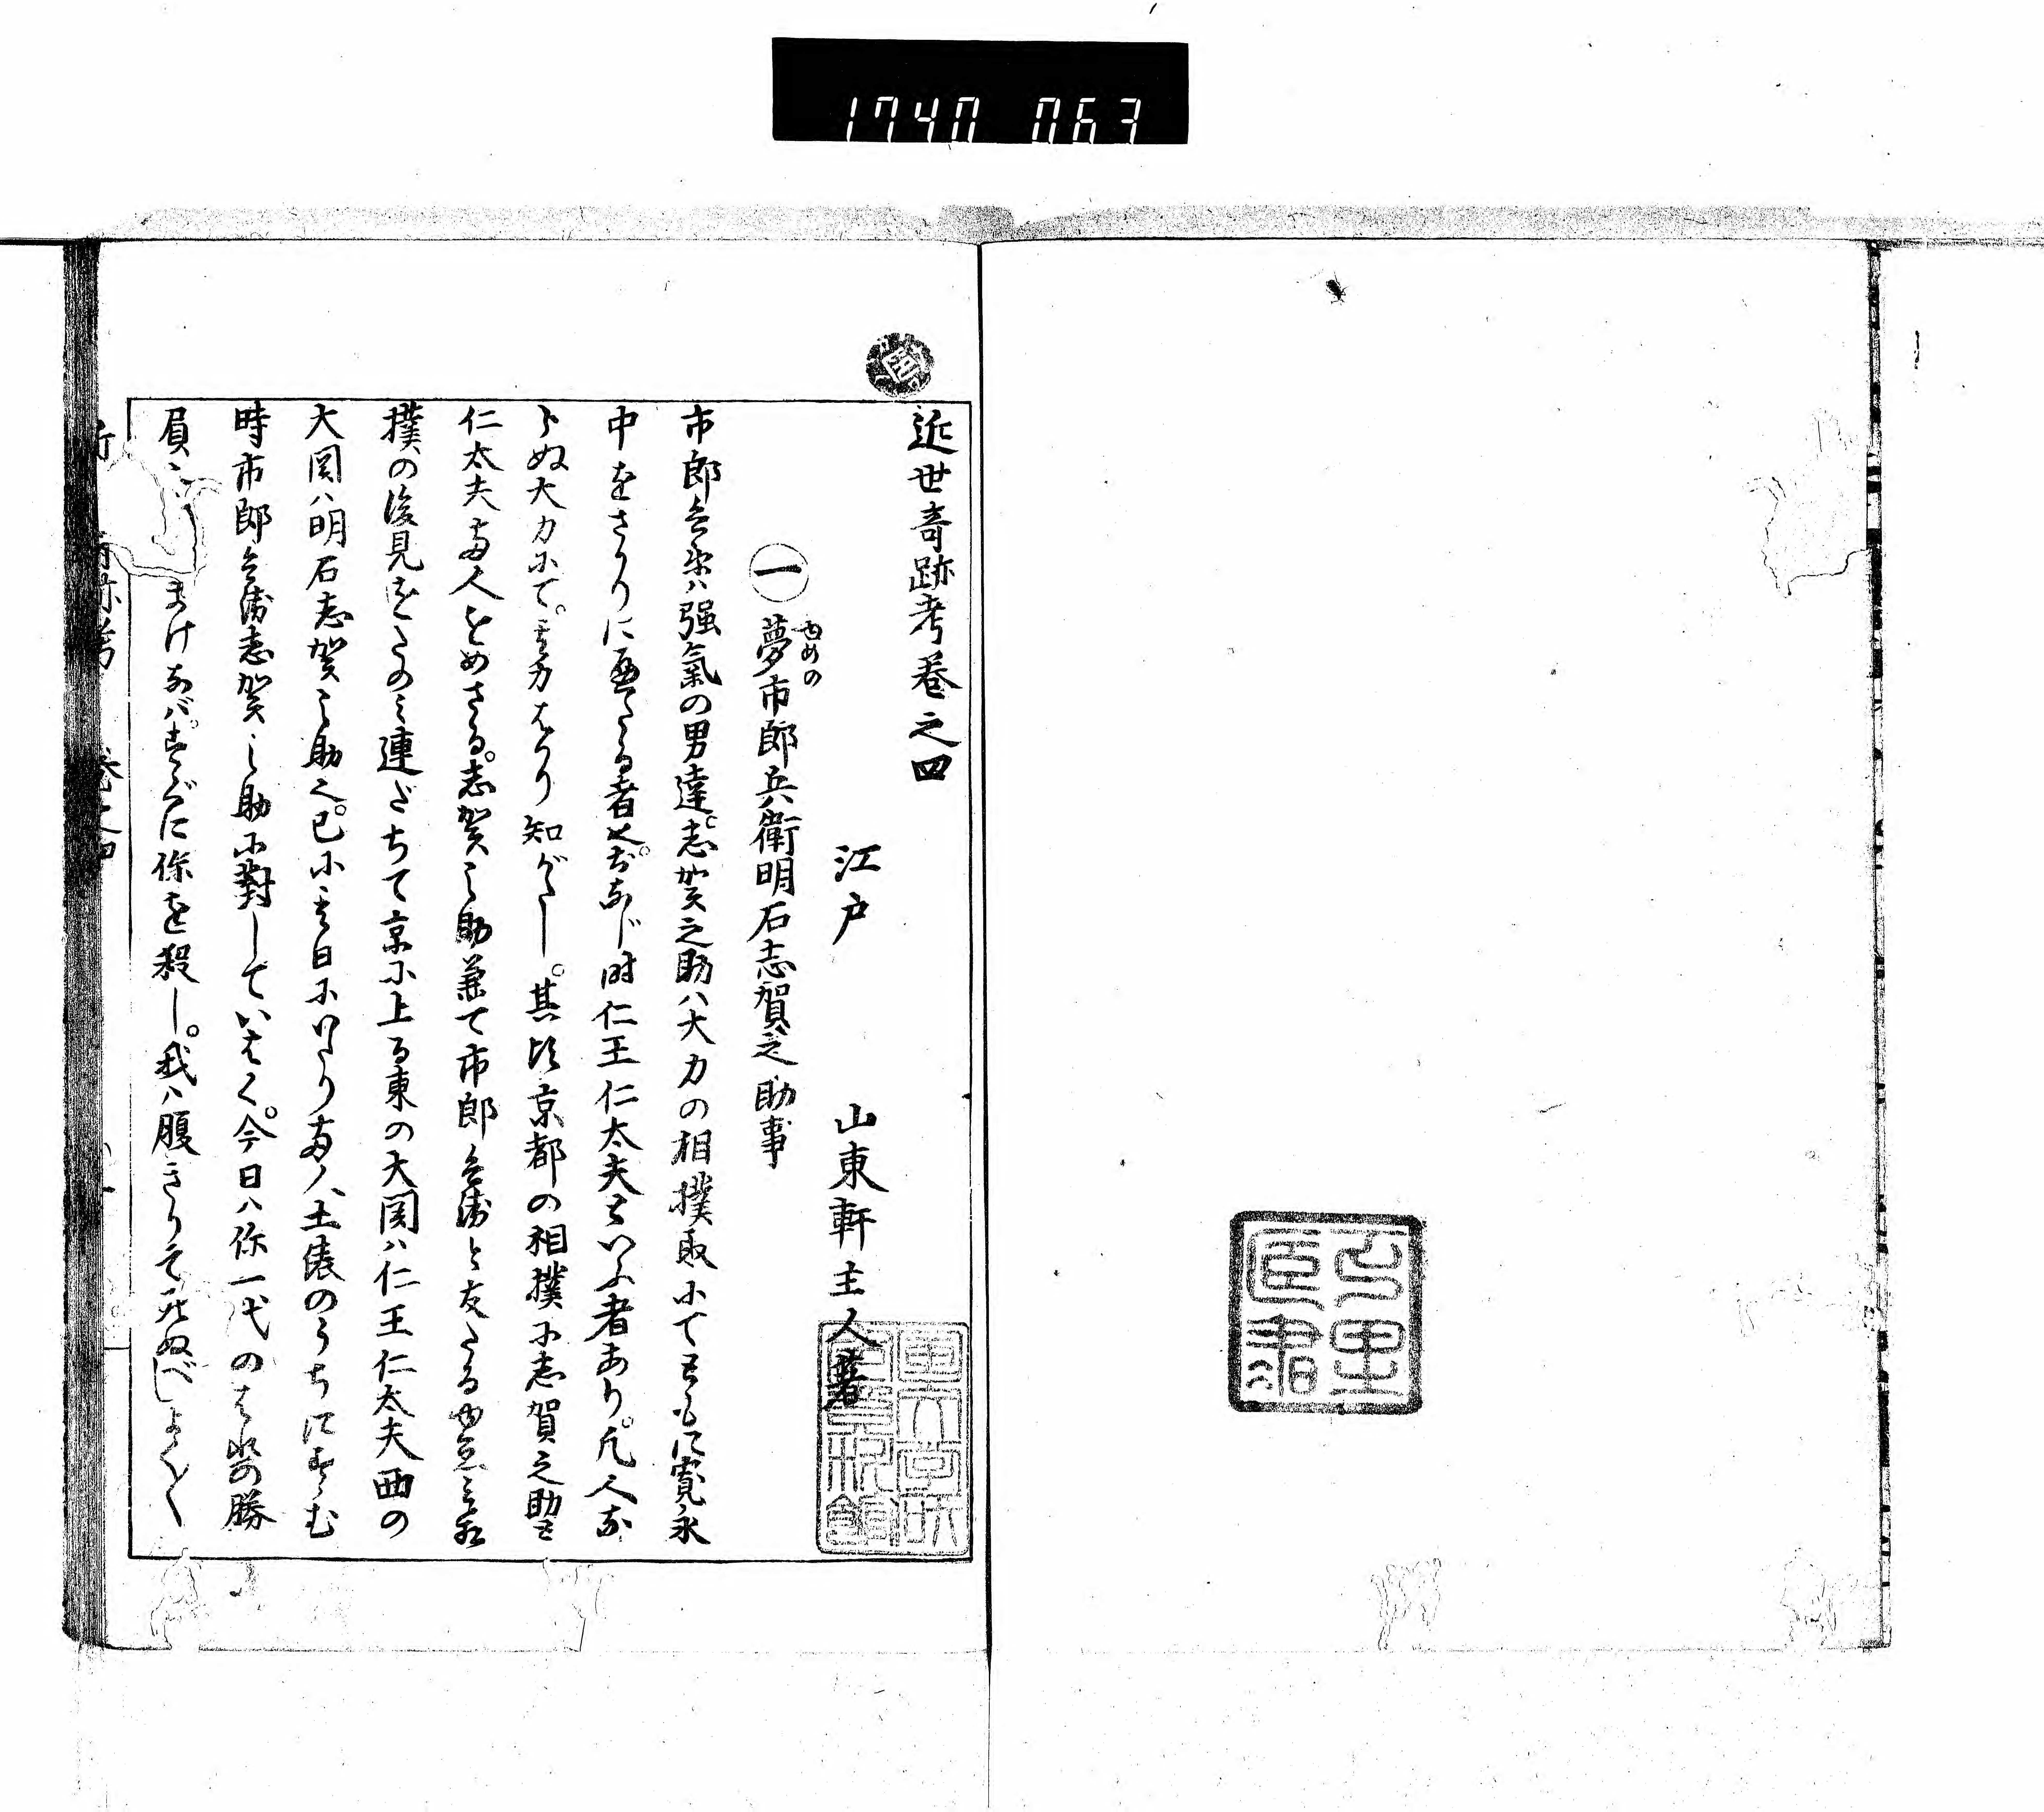 1740 063
近世奇跡考卷之四
江戸 山東軒主人著
㊀夢市郎兵衛明石志賀之助事
ゆめの
市郎兵衛ハ强氣の男達。志賀之助ハ大力の相撲取にてともに寛永
中をさかりに歴たる者也。おなじ時仁王仁太夫といふ者あり。凡人な
らぬ大力にて。其力はかり知がたし。其比京都の相撲に志賀之助と
仁太夫両人をめさる。志賀之助兼て市郎兵衛と友たるゆゑに相
撲の後見をたのみ連だちて京に上る東の大関ハ仁王仁太夫西の
大関ハ明石志賀之助也。已に其日にいたり両人土俵のうちにすゝむ
時市郎兵衛志賀之助に對していはく。今日ハ你一代のはれの勝
負也まけなバ。すぐに你を殺し。我ハ腹きりて死ぬべしよく〳〵